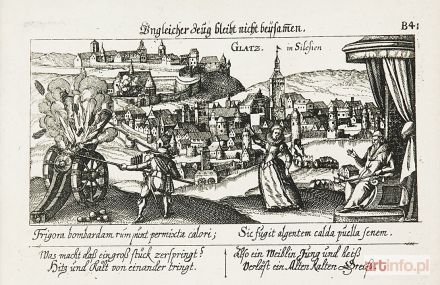 Ungleicher Zeug bleibt nicht beysamen.
B41
GLATZ. in Silesien
Frigora bombardam rumpunt permixta calori;
Sic fugit algentem calda puella senem.
Was macht daß ein groß stuck zerspringt?
Hitz und Kalt von einander tringt.
Also ein Weiblin Jung und heiß
Verläst ein Alten Kalten Greiß.
artinfo.pl